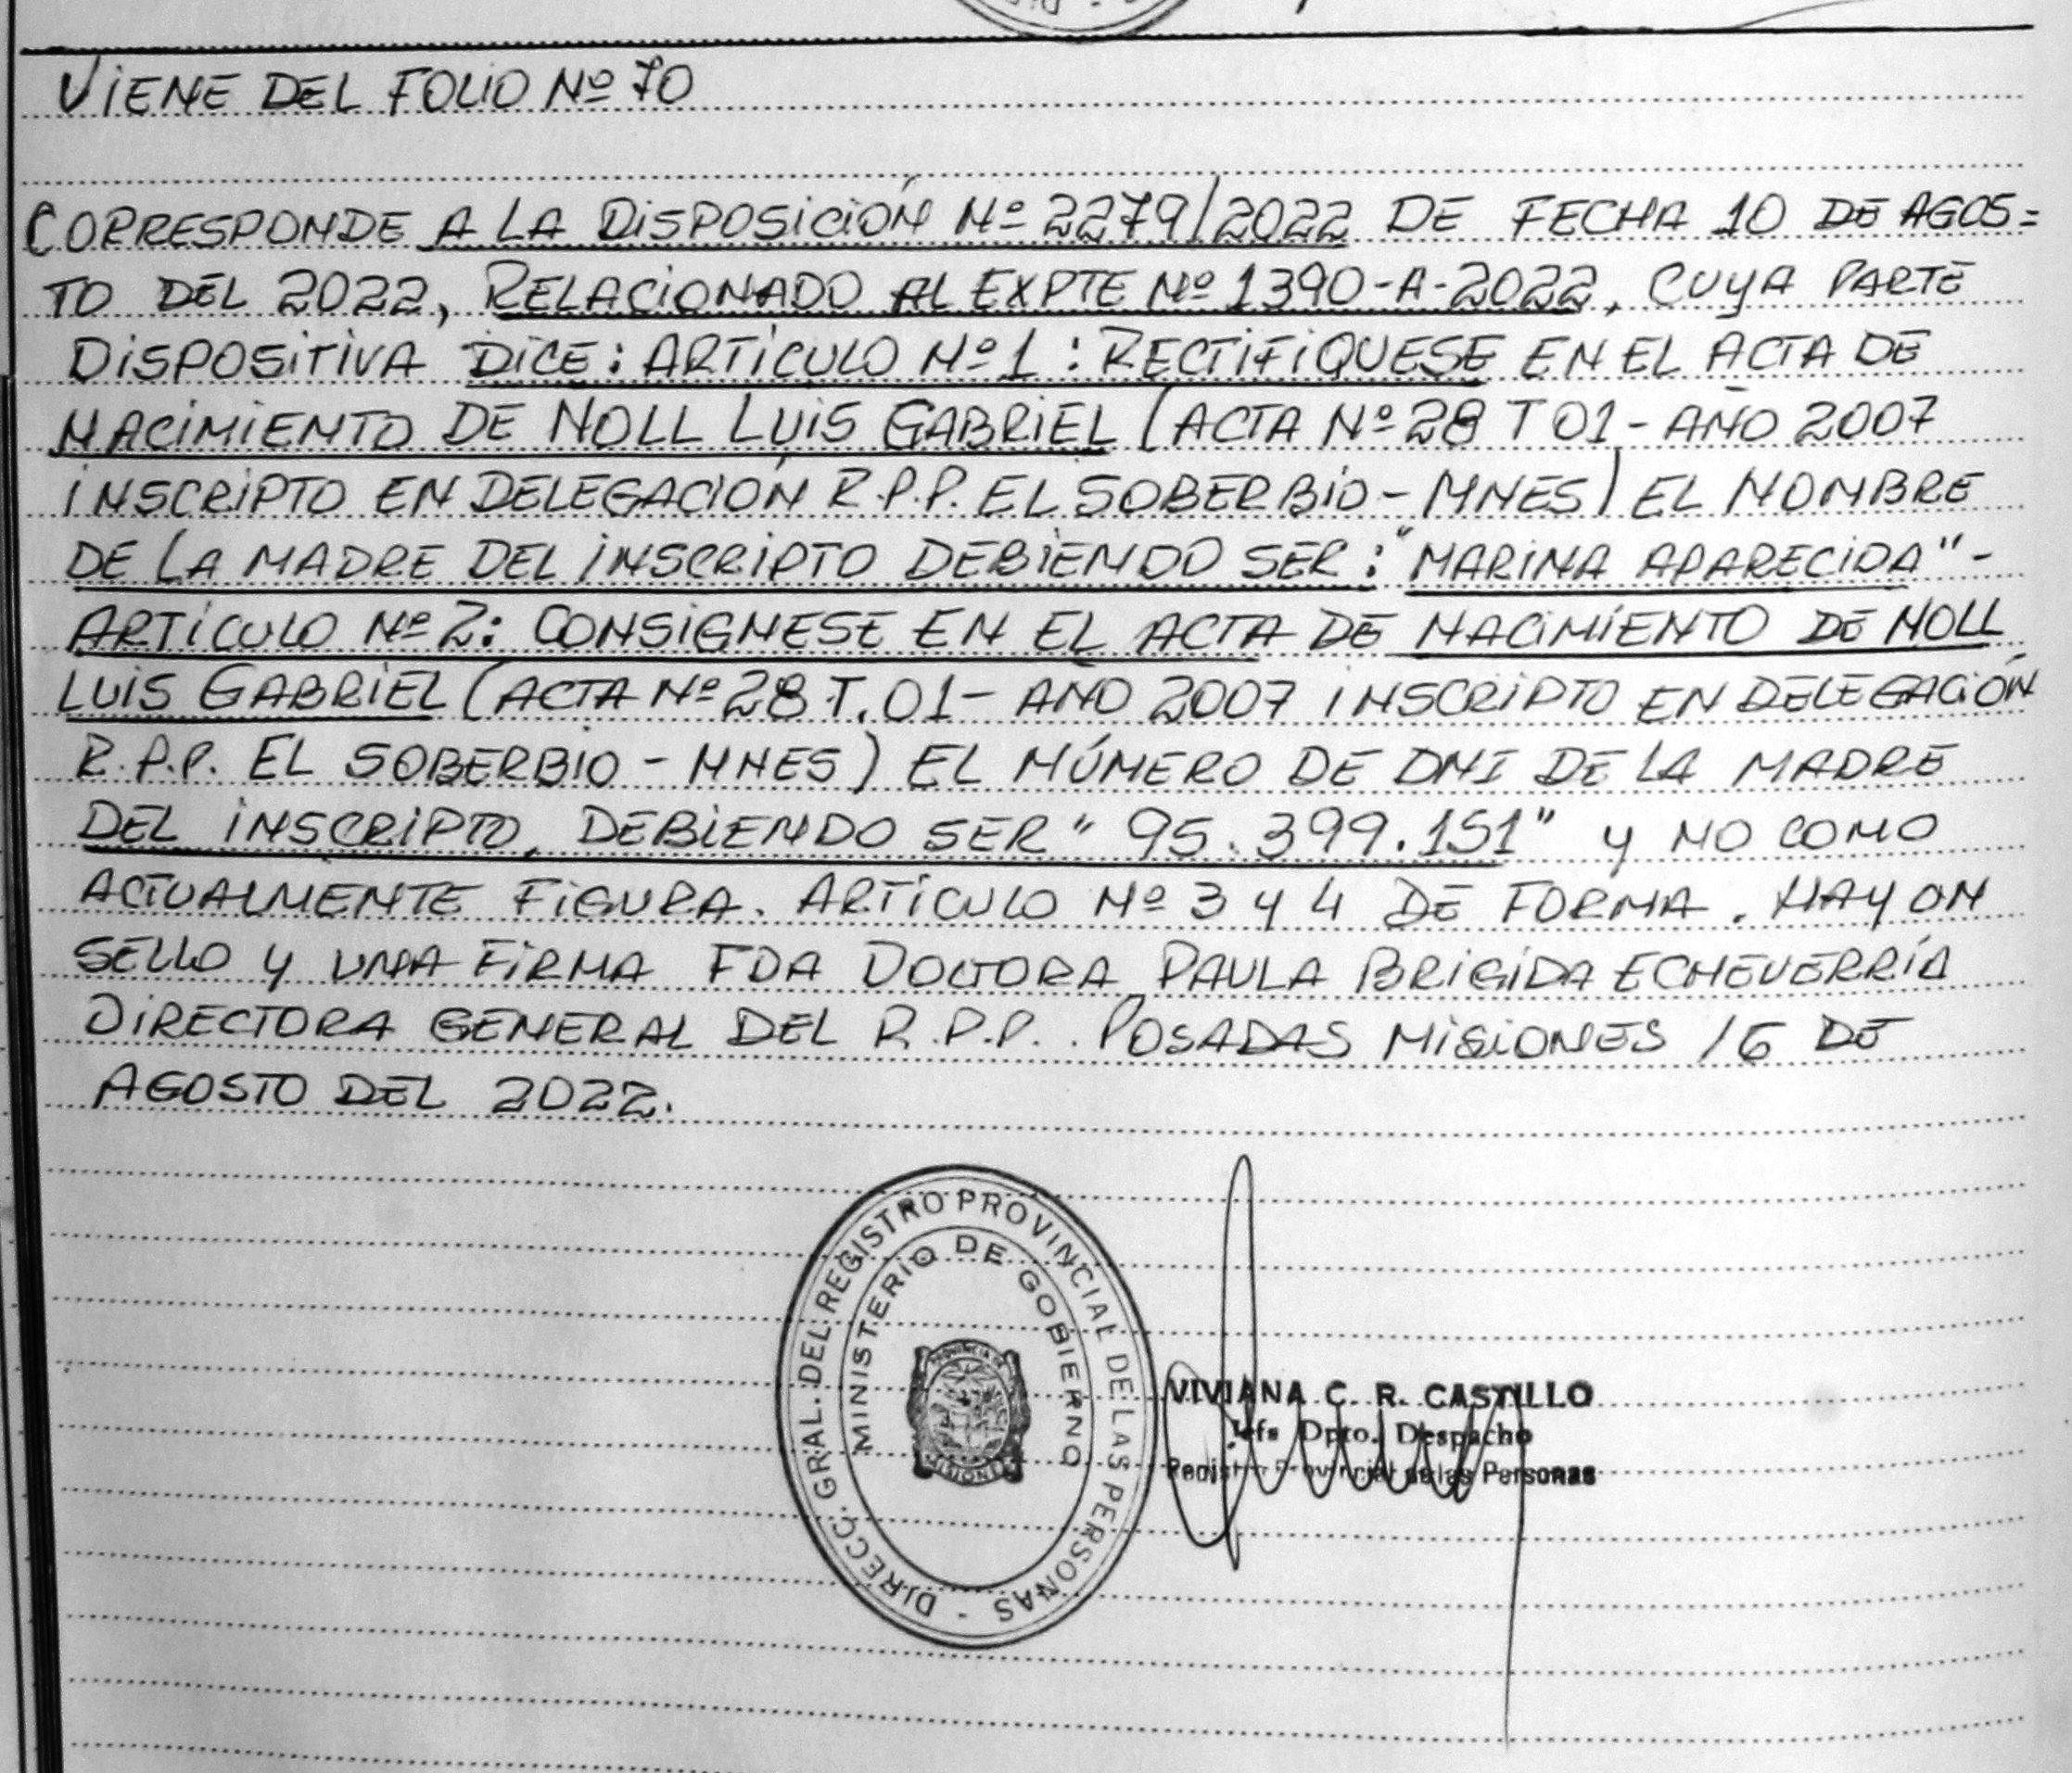 VIENE DEL FOLIO Nº 70
CORRESPONDE A LA DISPOSICIÓN Nº 2279/2022 DE FECHA 10 DE AGOS=
TO DEL 2022, RELACIONADO AL EXPTE Nº 1390-A-2022, CUYA PARTE
DISPOSITIVA DICE: ARTÍCULO Nº 1: RECTIFIQUESE EN EL ACTA DE
NACIMIENTO DE NOLL LUIS GABRIEL (ACTA Nº 28 T 01- AÑO 2007
INSCRIPTO EN DELEGACIÓN R.P.P. EL SOBERBIO - MNES) EL NOMBRE
DE LA MADRE DEL INSCRIPTO DEBIENDO SER: "MARINA APARECIDA"-
ARTÍCULO Nº 2: CONSIGNESE EN EL ACTA DE NACIMIENTO DE NOLL
LUIS GABRIEL (ACTA Nº 28 T. 01- AÑO 2007 INSCRIPTO EN DELEGACIÓN
R.P.P. EL SOBERBIO - MNES) EL NÚMERO DE DNI DE LA MADRE
DEL INSCRIPTO, DEBIENDO SER "95.399.151" Y NO COMO
ACTUALMENTE FIGURA. ARTÍCULO Nº 3 Y 4 DE FORMA. HAY UN
SELLO Y UNA FIRMA FDA DOCTORA PAULA BRIGIDA ECHEVERRÍA
DIRECTORA GENERAL DEL R.P.P. POSADAS MISIONES 16 DE
AGOSTO DEL 2022.
DIRECC. GRAL. DEL REGISTRO PROVINCIAL DE LAS PERSONAS -
MINISTERIO DE GOBIERNO
PROVINCIA DE
MISIONES
VIVIANA C. R. CASTILLO
Jefa Dpto. Despacho
Registro Provincial de las Personas